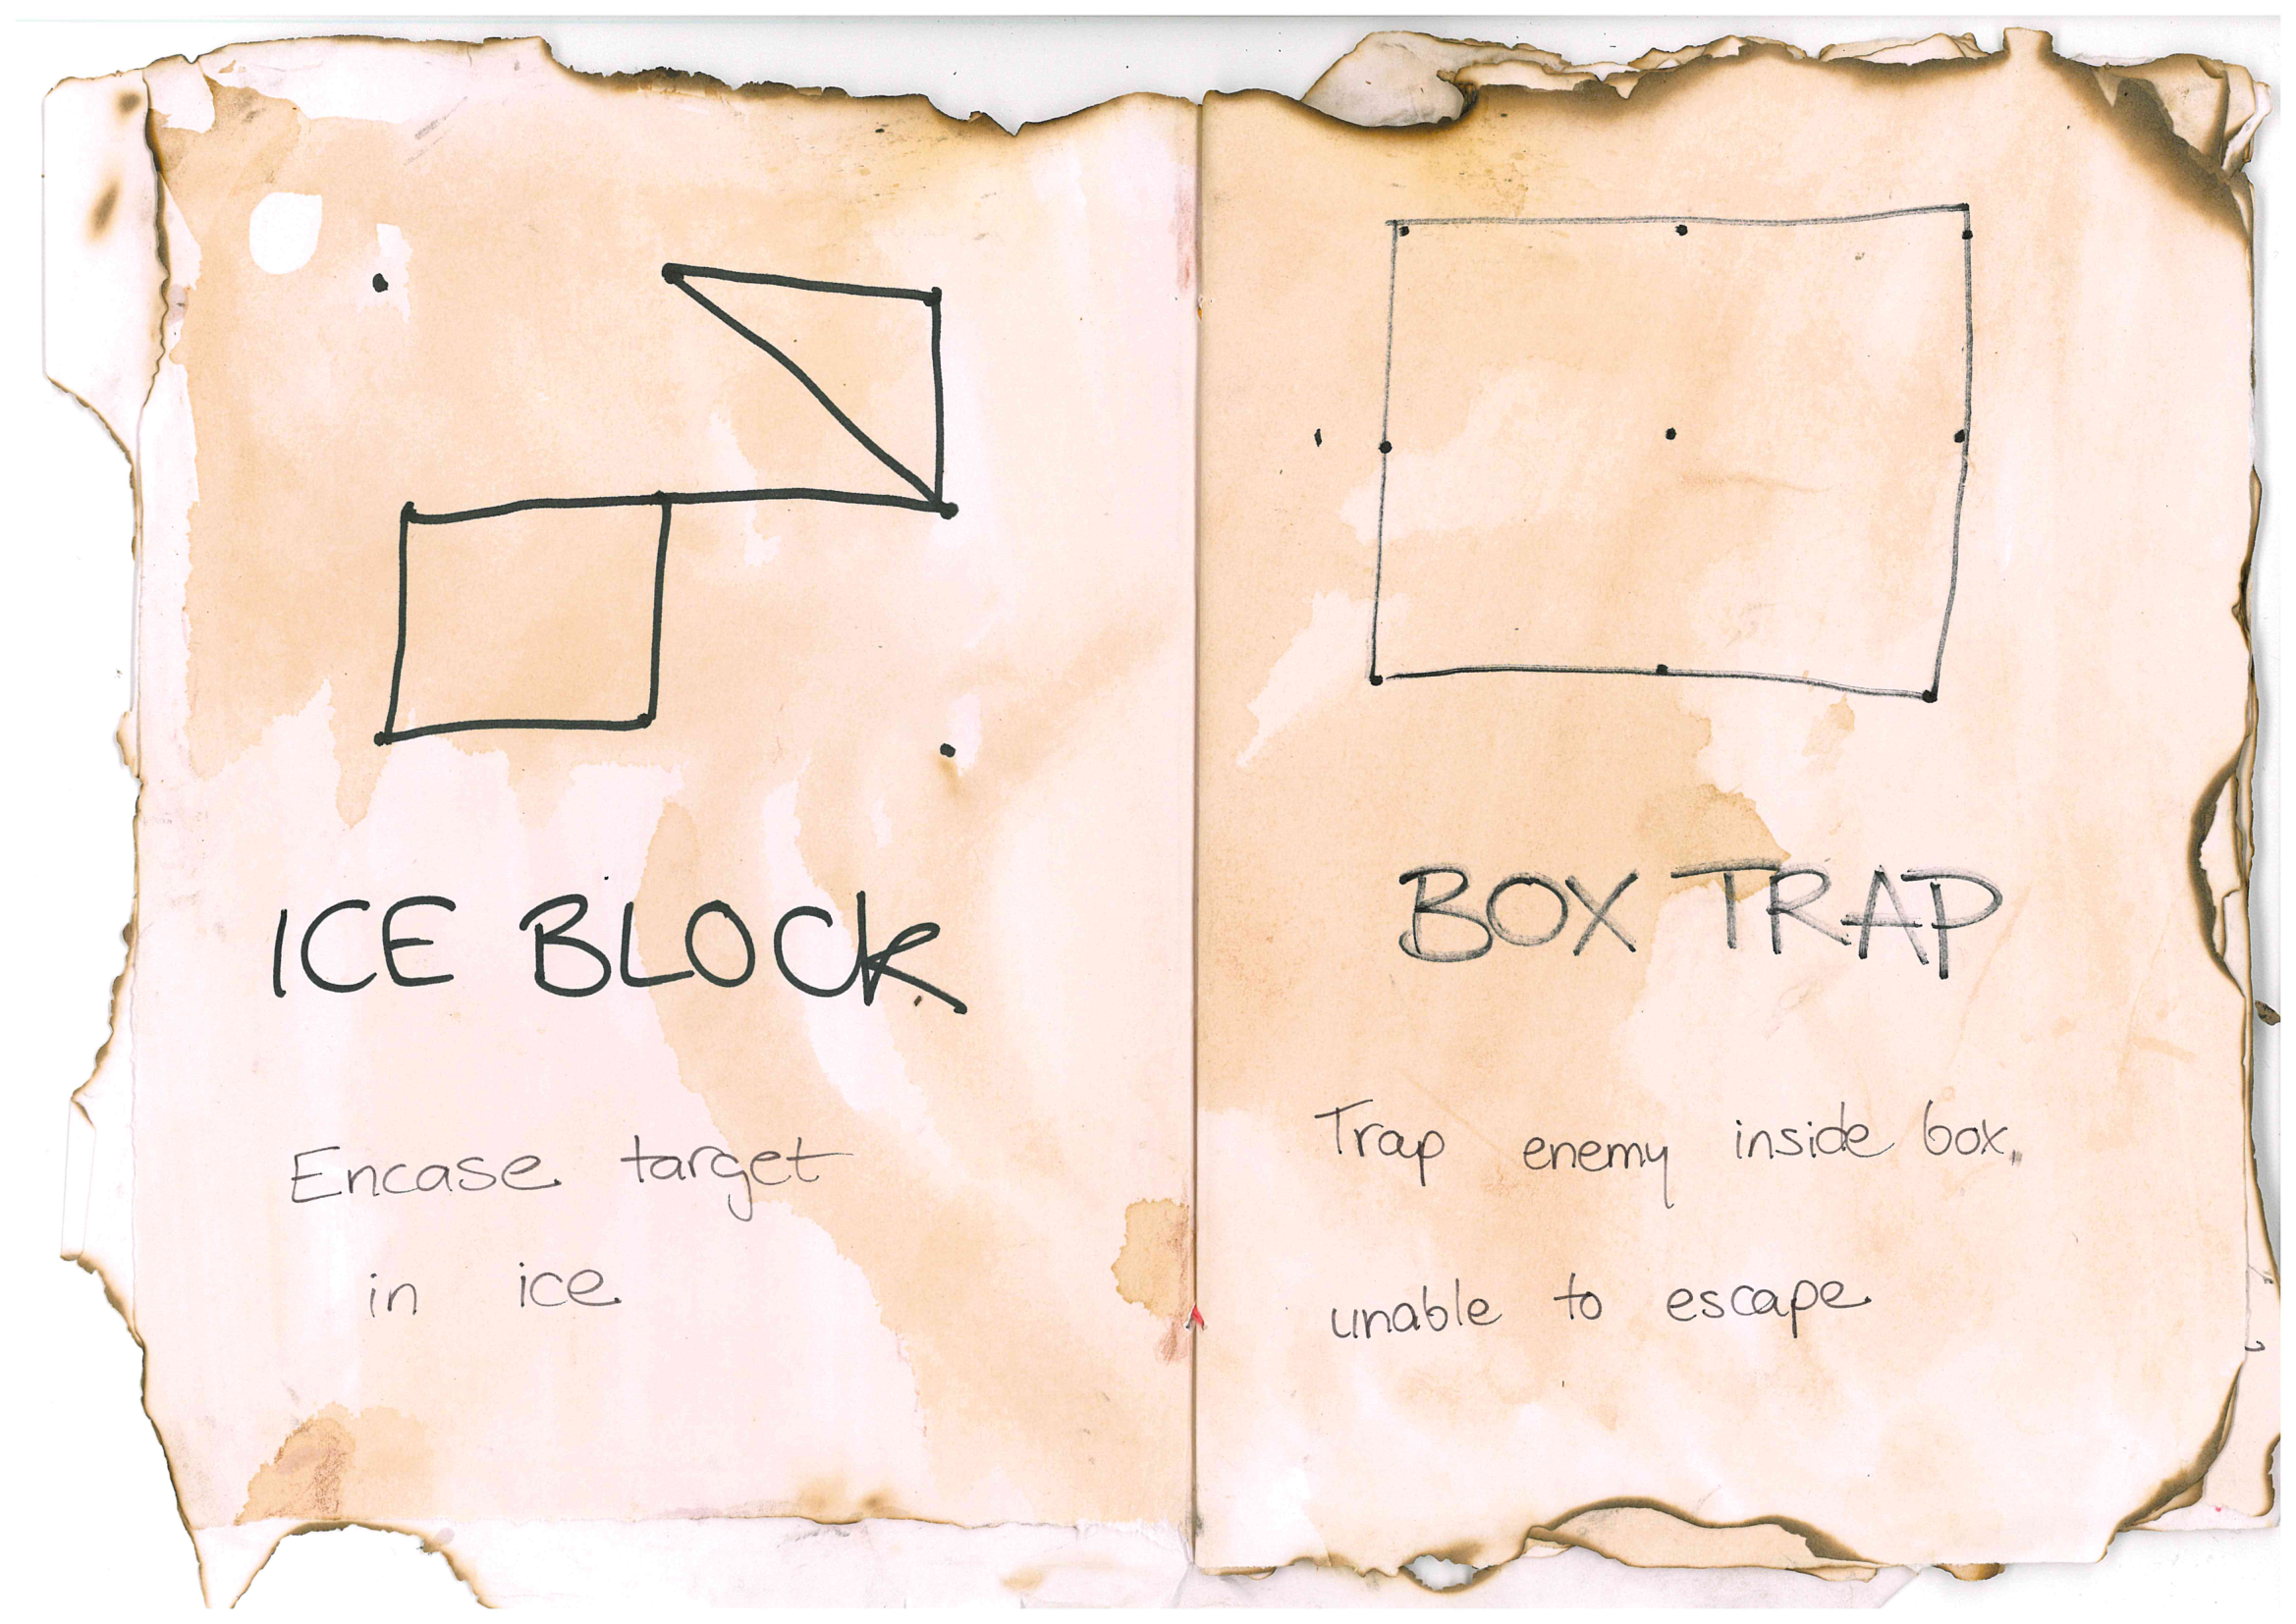 ICE BLOCK
Encase target
in ice
BOX TRAP
Trap enemy inside box.
unable to escape